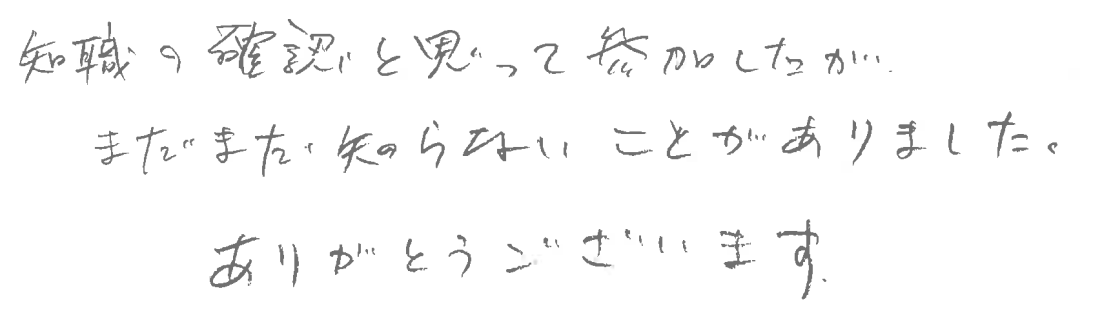 知職の確認と思って参加したが、
まだまだ知らないことがありました。
ありがとうございます.